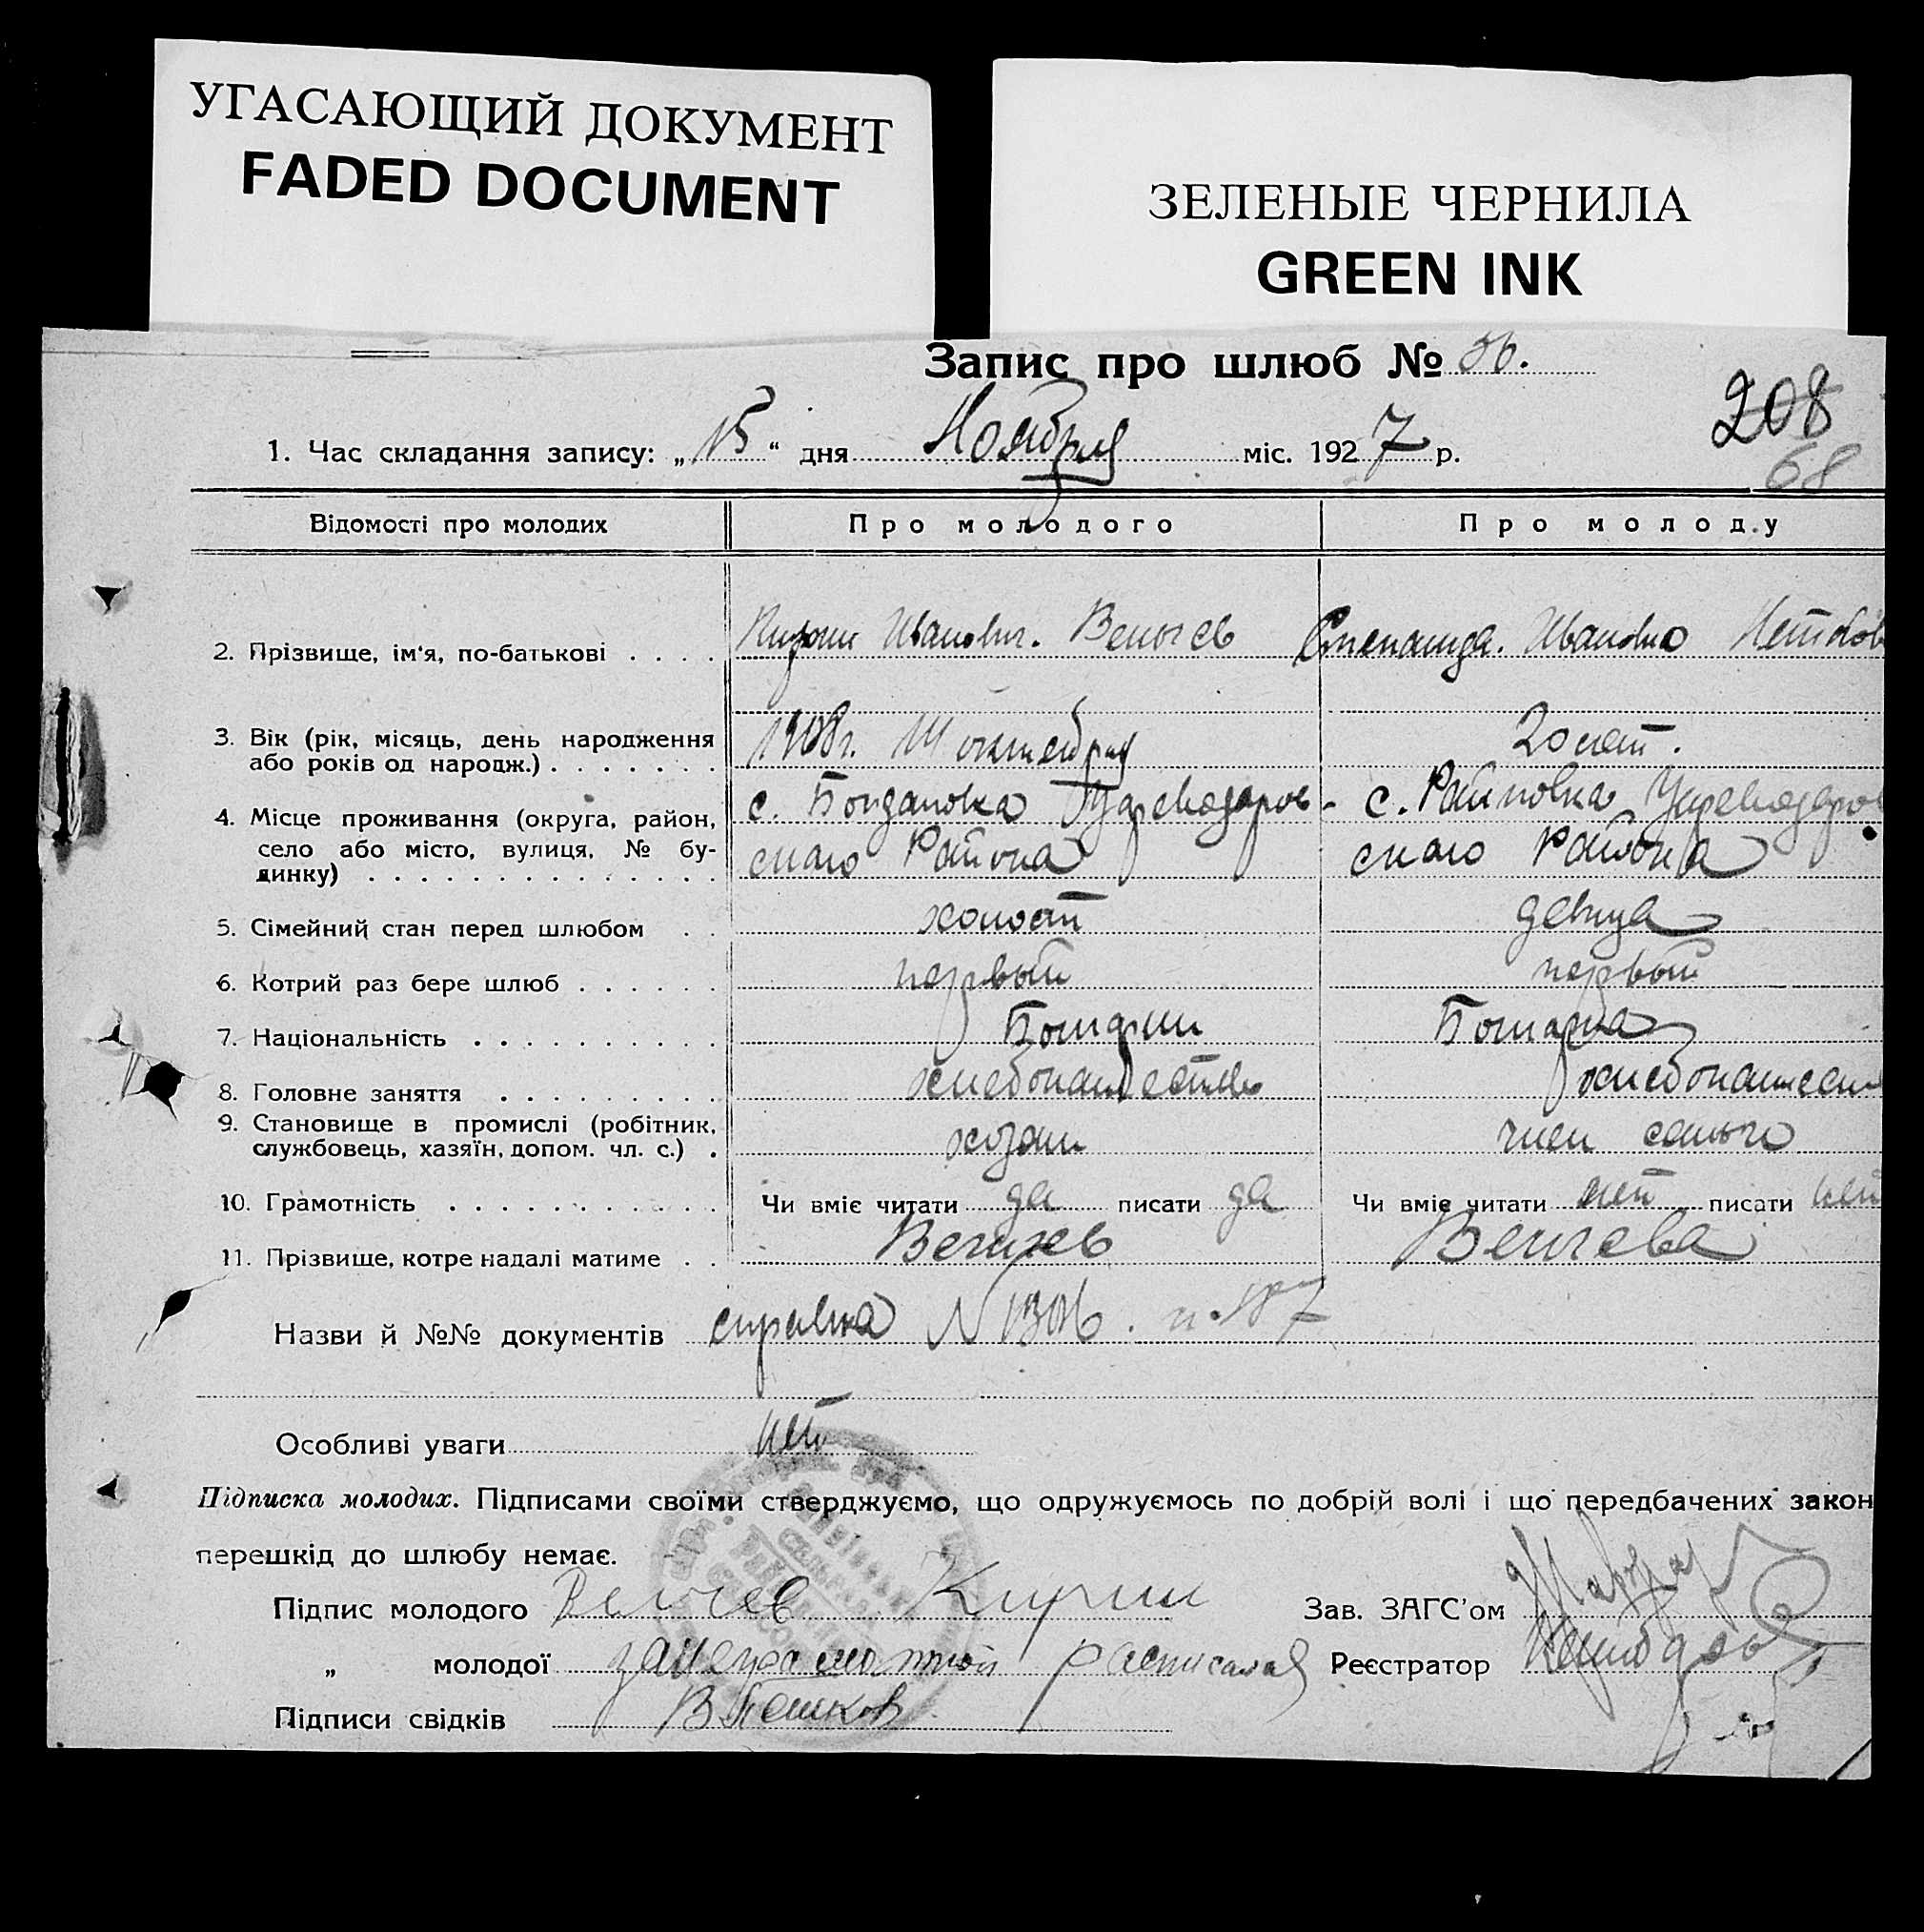 УГАСАЮЩИЙ ДОКУМЕНТ
FADED DOCUMENT
ЗЕЛЕНЫЕ ЧЕРНИЛА
GREEN INK
Запис про шлюб № 56.
208
68
1. Час складання запису: „15“ дня Ноября міс. 1927 р.
Відомості про молодих Про молодого Про молоду
2. Прізвище, ім'я, по-батькові . . . . Иванович. Велчев Степанида. Ивановна
3. Вік (рік, місяць, день народження
або років од народж.) . . . . . . . 1908г. 14 октября 20 лет.
4. Місце проживання (округа, район, с. Богдановка Цареводаров- с. Райновка Цареводаров
село або місто, вулиця, № бу- скаго Района скаго Района
динку) . . . . . . . . . . . . . .
5. Сімейний стан перед шлюбом . . холост девица
6. Котрий раз бере шлюб . . . . . . первый первый
7. Національність . . . . . . . . . . Болгарин Болгарка
8. Головне заняття . . . . . . . . . хлебопашество хлебопашест
9. Становище в промислі (робітник,
службовець, хазяїн, допом. чл. с.) . хозяин член
10. Грамотність . . . . . . . . . . . . Чи вміє читати да писати да Чи вміє читати нет писати нет
11. Прізвище, котре надалі матиме . . Велчев Велчева
Назви й №№ документів справка N
Особливі уваги нет
Підписка молодих. Підписами своїми стверджуємо, що одружуємось по добрій волі і що передбачених закон
перешкід до шлюбу немає.
Підпис молодого Велчев Кирил Зав. ЗАГС'ом
„ молодої за неграмотной расписался Реєстратор
Підписи свідків В